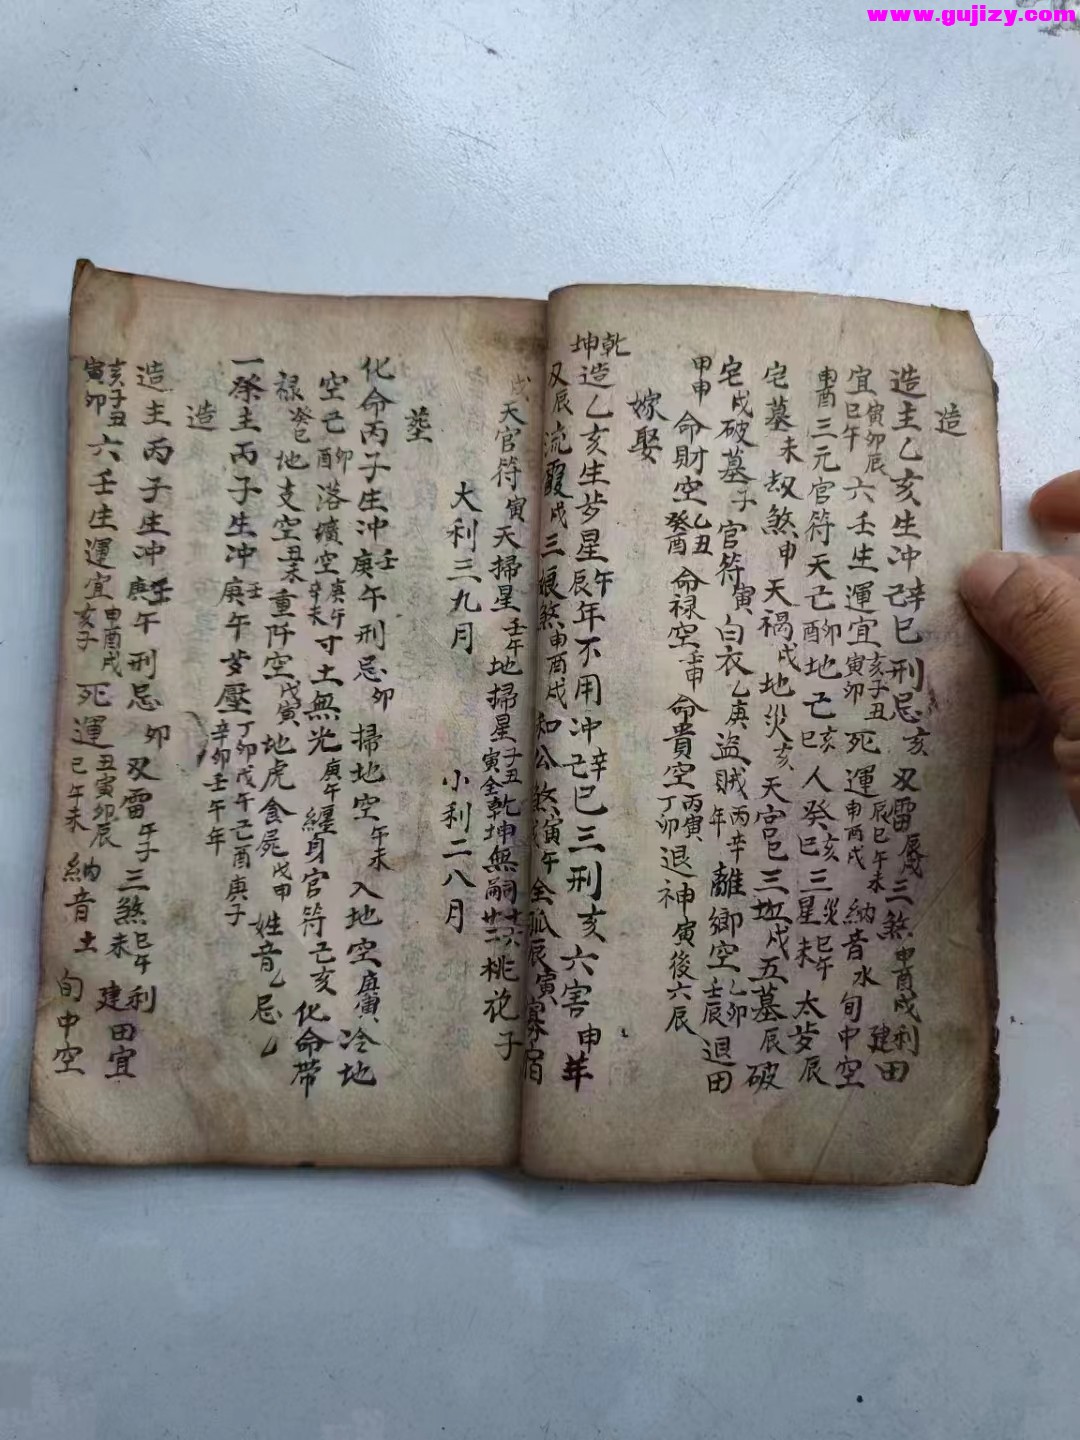 www.gujizy.com
造
造主乙亥生冲辛己巳刑忌亥 双雷辰三煞申酉戌利建田
宜寅卯辰巳午六壬生運宜亥子丑寅卯死運辰巳午未申酉戌納音水旬中空
申酉三元官符天己卯酉地亡亥巳人癸巳亥三星災巳午未太岁辰
宅墓未刼煞申天禍戌地災亥天官巳三坵戌五墓辰破
宅戌破墓子官符寅白衣乙庚盗賊丙辛年離鄉空乙卯壬辰退田
甲申命財空乙丑癸酉命禄空壬申命貴空丙寅丁卯退神寅後六辰
嫁娶
乾坤造乙亥生岁星午辰年不用冲辛己巳三刑亥六害申年
又辰流霞戌三娘煞申酉戌和公煞寅午全孤辰寅寡宿
戌天官符寅天掃星壬午地掃星子丑寅全乾坤無嗣桃花子
大利三九月 小利二八月
塟
化命丙子生冲壬庚午刑忌卯掃地空午未入地空庚寅冷地
空己卯酉落壙空庚午辛未寸土無光庚午纏身官符己亥化命帶
禄癸巳地支空丑未重阡空戊寅地虎食屍戊申姓音乙忌乙
一祭主丙子生冲壬庚午岁壓丁卯戊午己酉庚子辛卯壬午年
造
造主丙子生冲壬庚午刑忌卯双雷午子三煞巳午未利建田宜
亥子丑寅卯六壬生運宜申酉戌亥子死運丑寅卯辰巳午未納音土旬中空